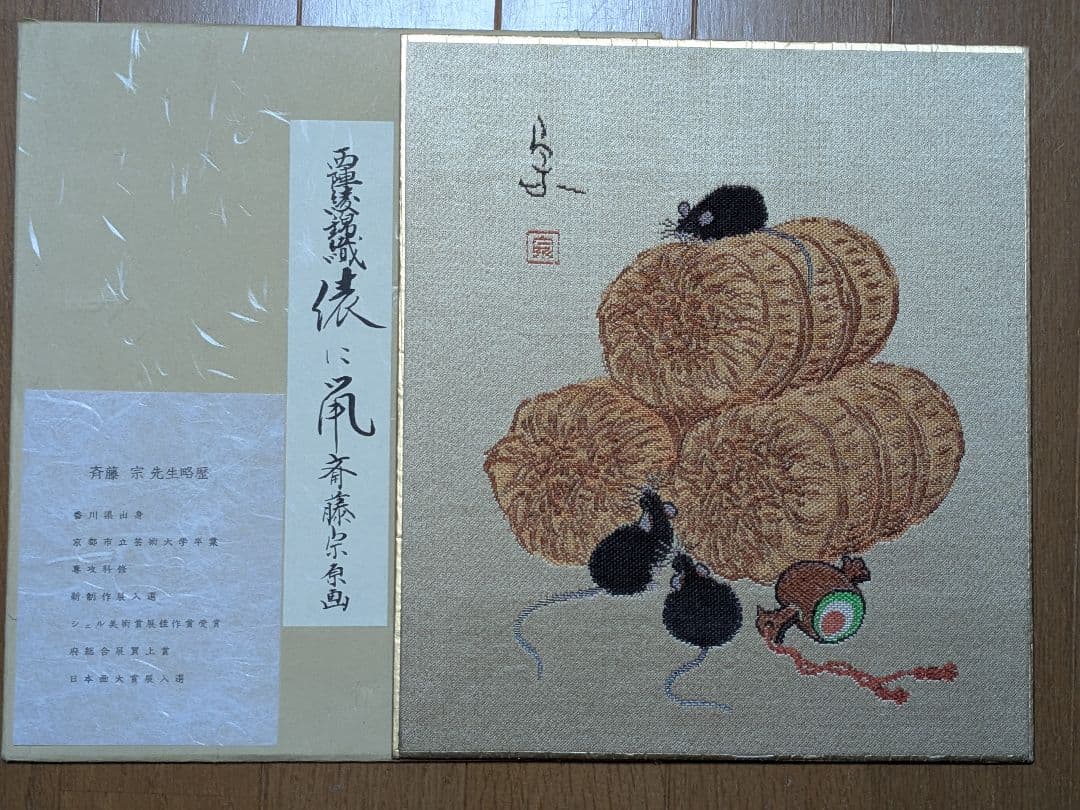 西陣綾錦織 俵に鼠 斎藤宗原画
斉藤 宗 先生略歴
香川県出身
京都市立芸術大学卒業
専攻科修
新制作展入選
シェル美術賞展佳作賞受賞
府総合展買上賞
日本画大賞展入選
宗